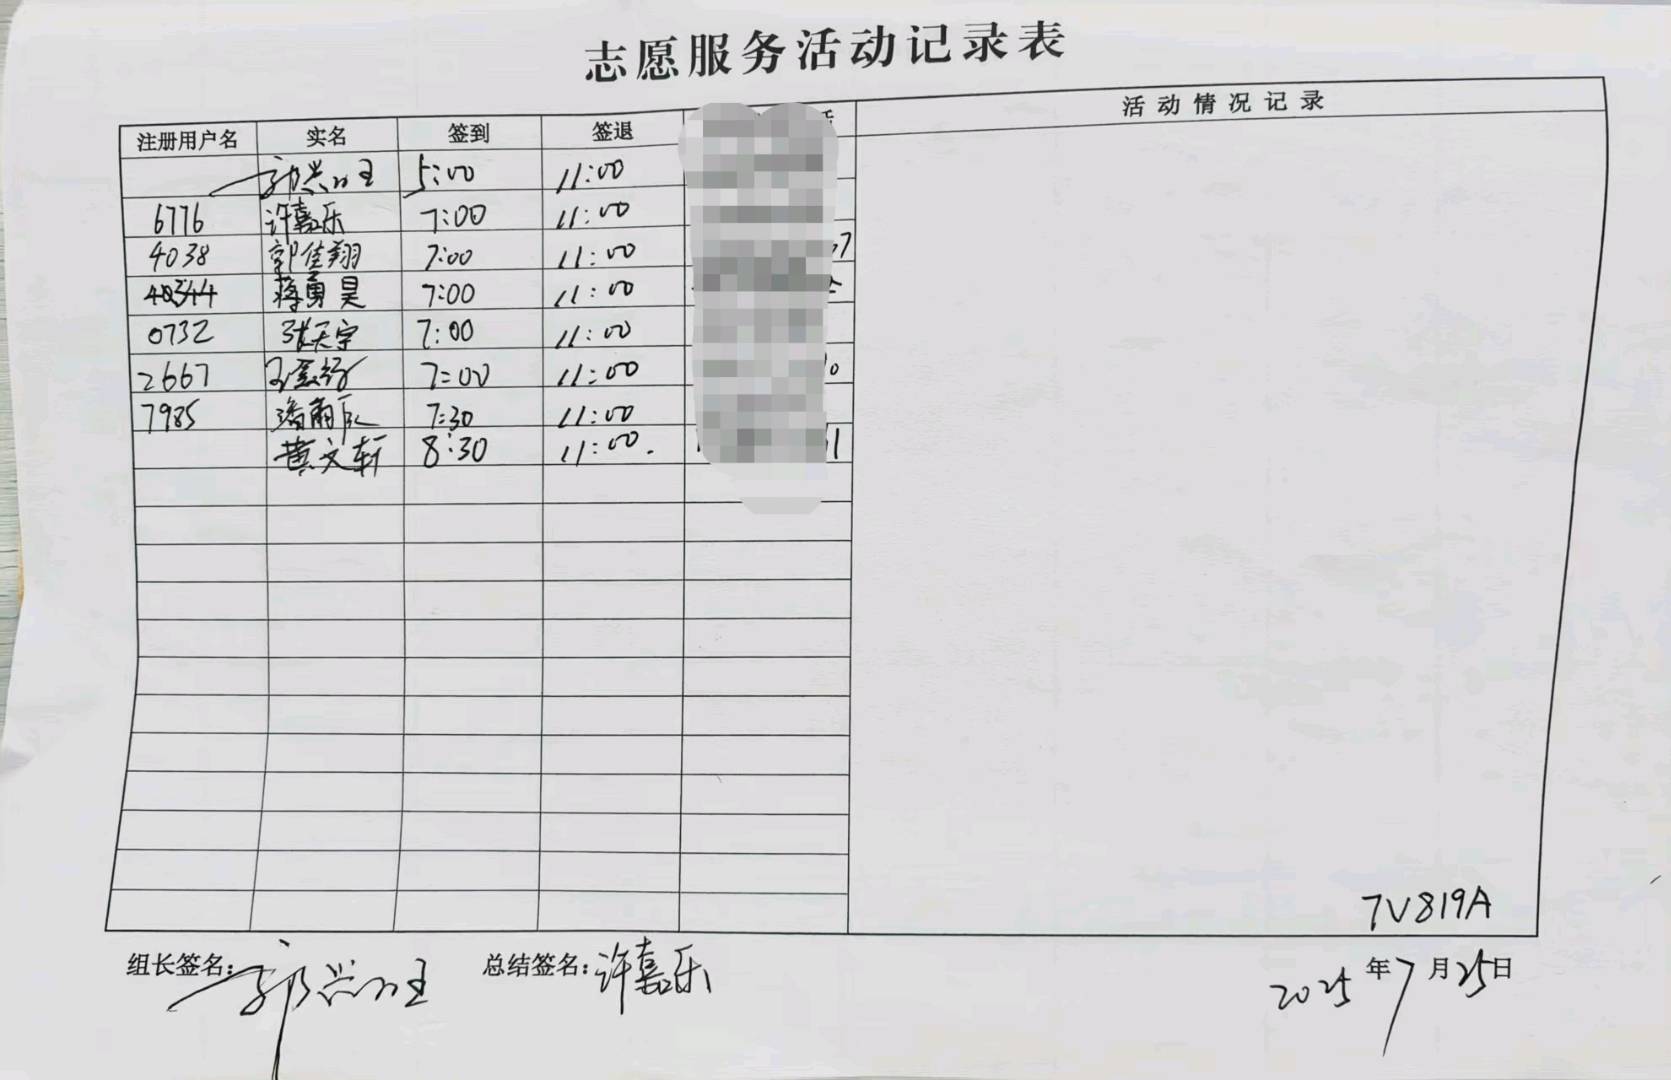 志愿服务活动记录表
注册用户名 实名 签到 签退 活动情况记录
5:00 11:00
6776 许嘉乐 7:00 11:00
4038 郭佳翔 7:00 11:00 7
蒋勇昊 7:00 11:00
0732 张天宇 7:00 11:00
2667 7:00 11:00
7985 潘雨 7:30 11:00
黄文轩 8:30 11:00.
7V819A
组长签名: 总结签名:许嘉乐 2025年7月25日